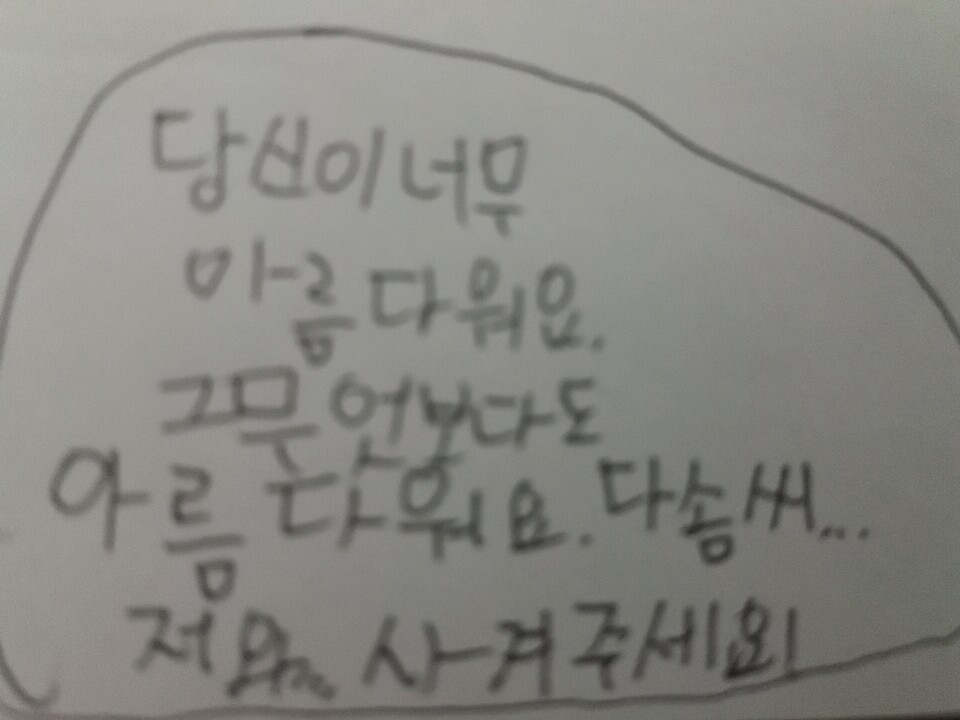 당신이 너무
아름다워요.
그 무엇보다도
아름다워요. 다솜씨...
저와... 사겨주세요!